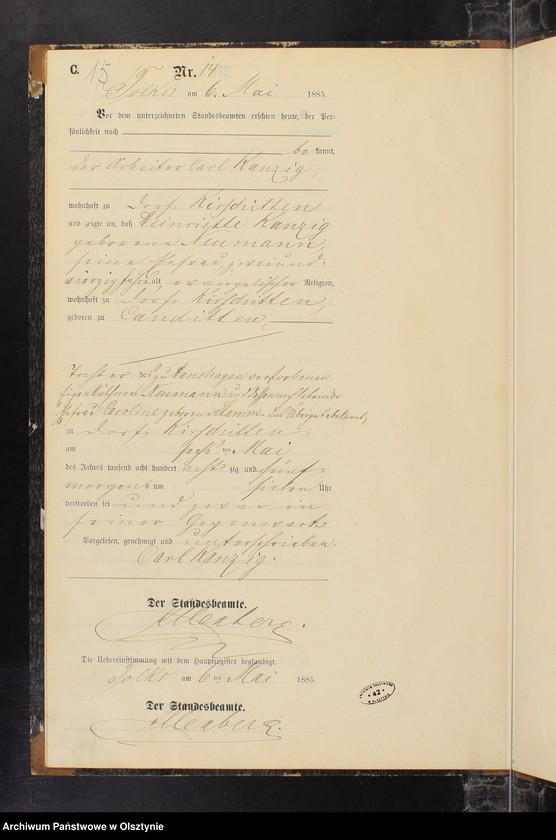 C. 15 Nr. 14
Tolks am 6. Mai 1885.
Vor dem unterzeichneten Standesbeamten erschien heute, der Per-
sönlichkeit nach
bekannt,
der Arbeiter Carl Kanzig,
wohnhaft zu Dorf Kirschitten
und zeigte an, daß Heinriette Kanzig
geborene Neumann,
seine Ehefrau, zweiund-
vierzig Jahre alt, evangelischer Religion,
wohnhaft zu Dorf Kirschitten,
geboren zu Canditten,
Tochter des zu verstorbenen
Neumann und dessen
Ehefrau Caroline geborene
zu Dorf Kirschitten
am sechs ten Mai
des Jahres tausend acht hundert acht zig und fünf
morgens um sieben Uhr
verstorben sei und zwar in
seiner Gegenwart
Vorgelesen, genehmigt und unterschrieben.
Carl Kanzig.
Der Standesbeamte.
Die Uebereinstimmung mit dem Hauptregister beglaubigt.
Tolks am 6 ten Mai 1885.
Der Standesbeamte.
42
Archiwum Państwowe w Olsztynie